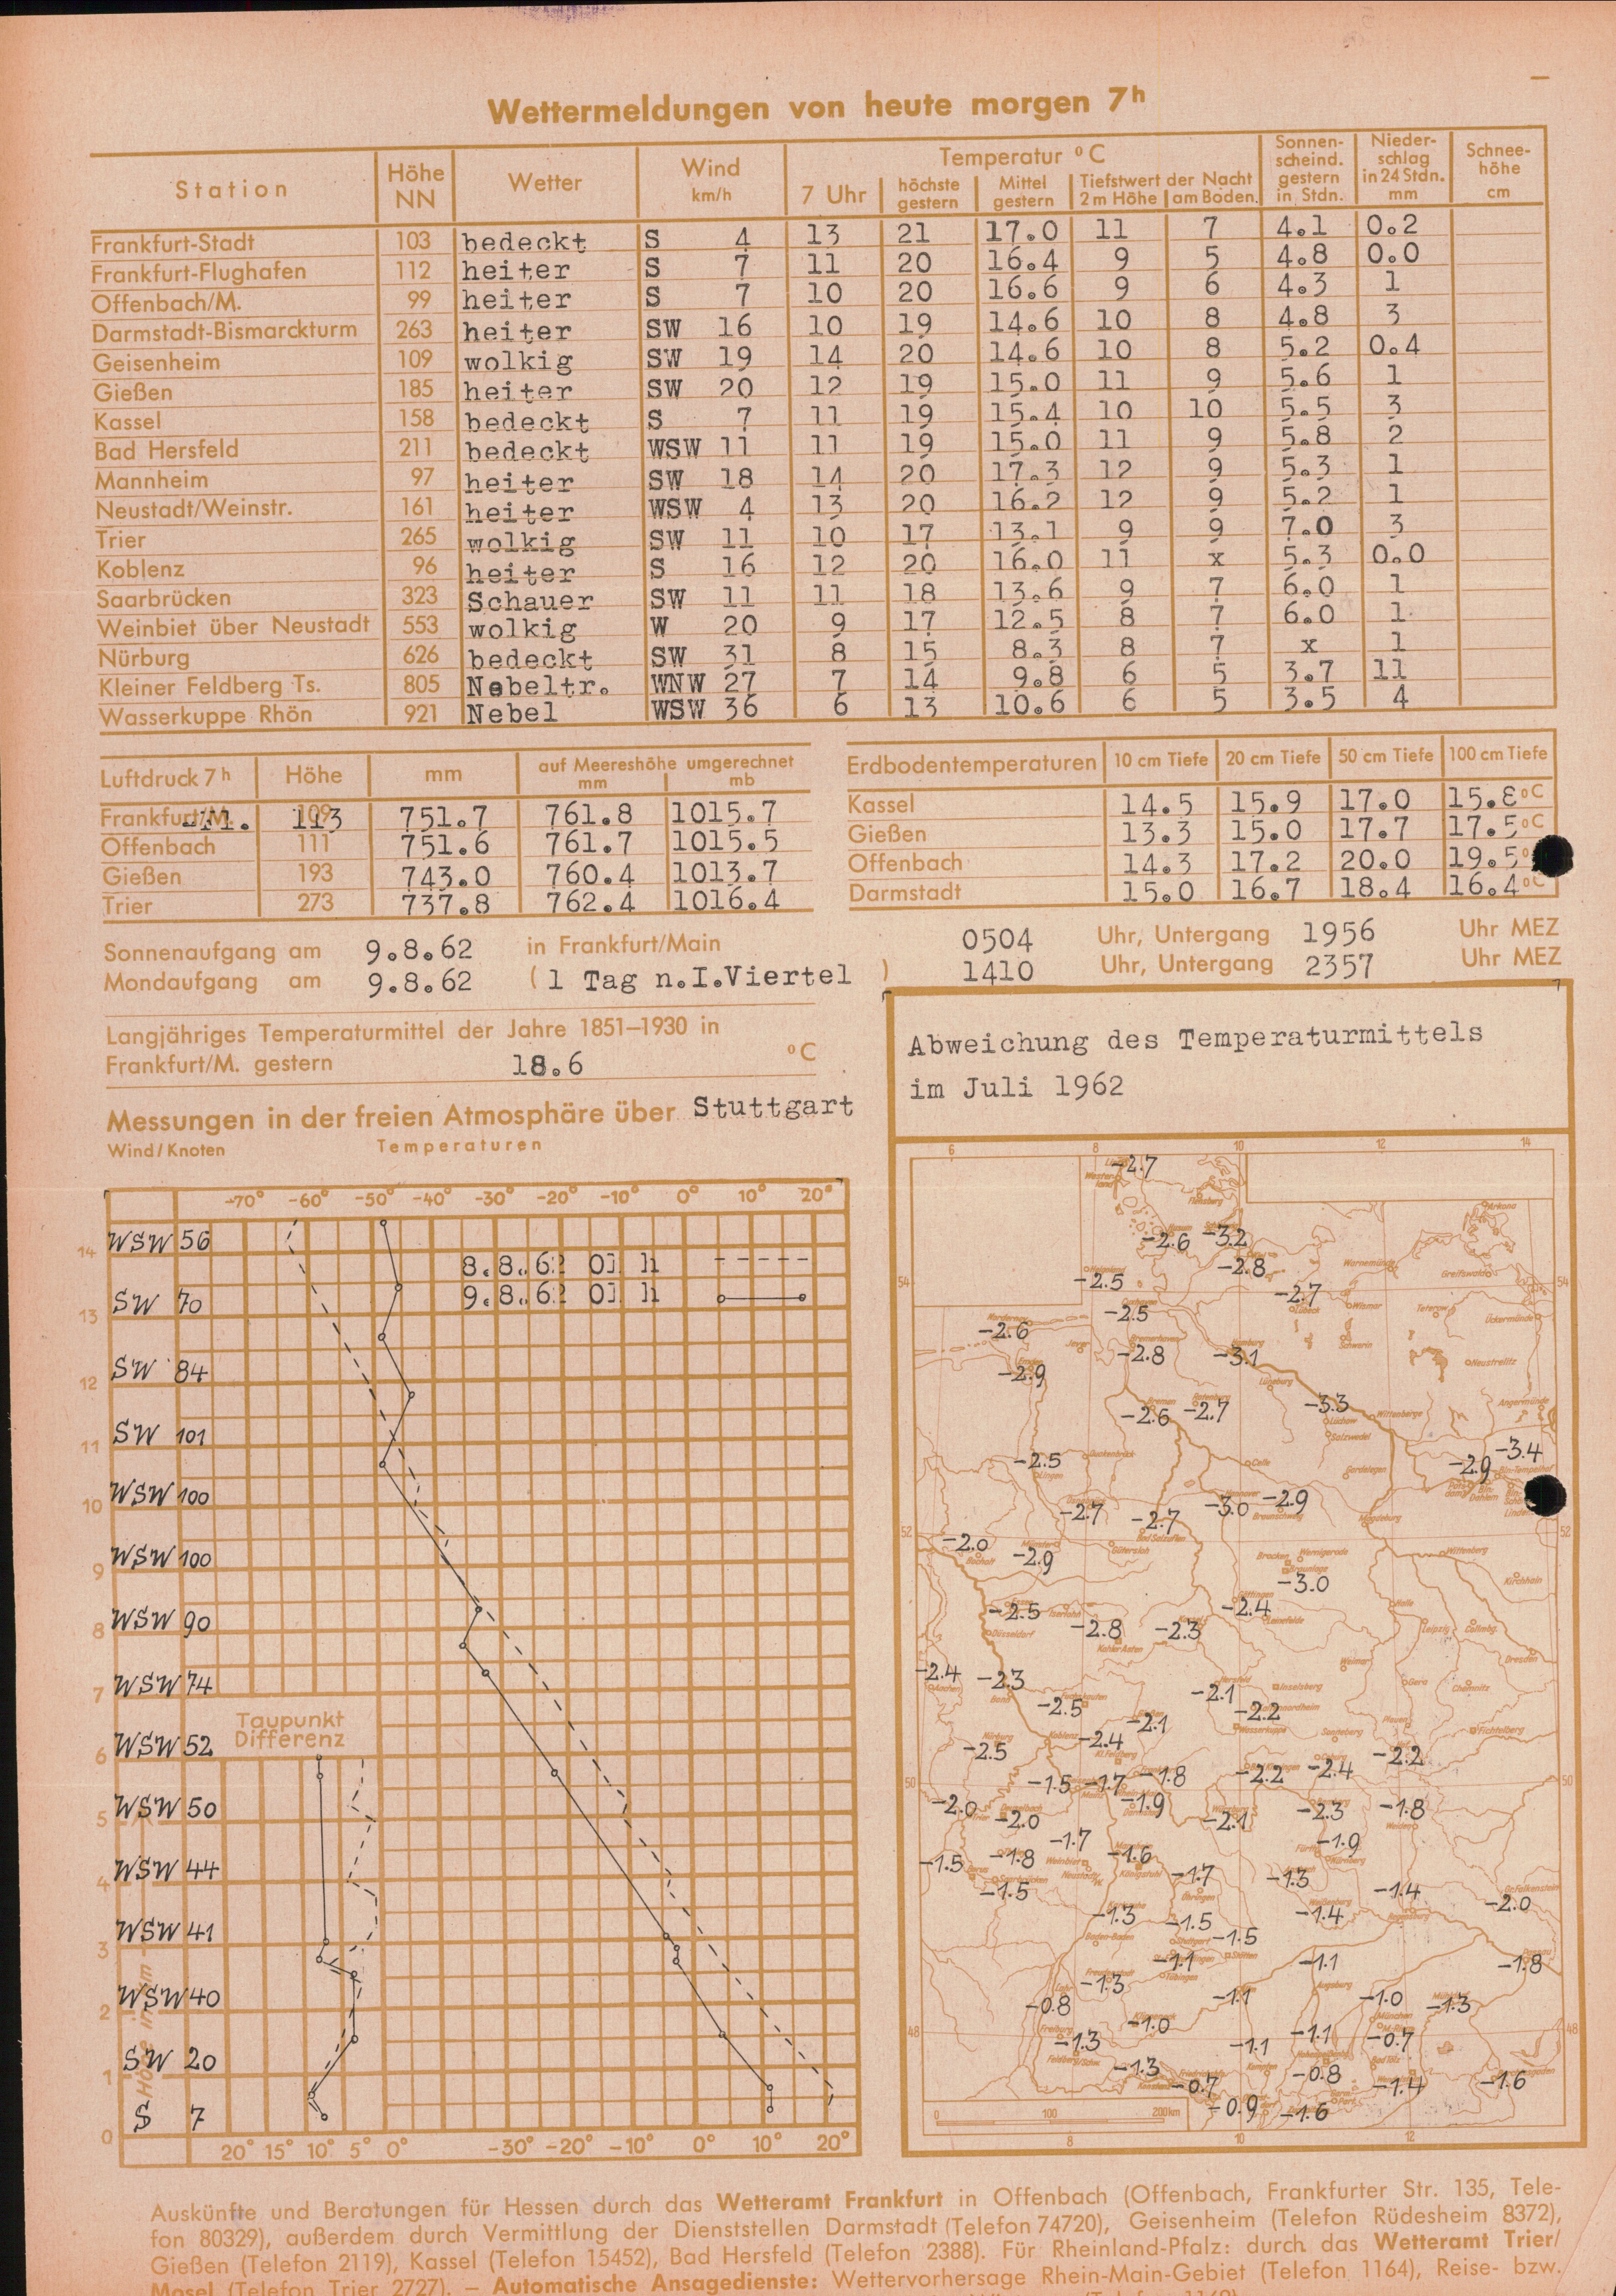 Wettermeldungen von heute morgen 7h
Station Höhe NN Wetter Wind km/h Temperatur °C 7 Uhr höchste gestern Mittel gestern Tiefstwert der Nacht 2 m Höhe am Boden Sonnenscheind. gestern in Stdn. Niederschlag in 24 Stdn. mm Schneehöhe cm
Frankfurt-Stadt 103 bedeckt S 4 13 21 17.0 11 7 4.1 0.2
Frankfurt-Flughafen 112 heiter S 7 11 20 16.4 9 5 4.8 0.0
Offenbach/M. 99 heiter S 7 10 20 16.6 9 6 4.3 1
Darmstadt-Bismarckturm 263 heiter SW 16 10 19 14.6 10 8 4.8 3
Geisenheim 109 wolkig SW 19 14 20 14.6 10 8 5.2 0.4
Gießen 185 heiter SW 20 12 19 15.0 11 9 5.6 1
Kassel 158 bedeckt S 7 11 19 15.4 10 10 5.5 3
Bad Hersfeld 211 bedeckt WSW 11 11 19 15.0 11 9 5.8 2
Mannheim 97 heiter SW 18 14 20 17.3 12 9 5.3 1
Neustadt/Weinstr. 161 heiter WSW 4 13 20 16.2 12 9 5.2 1
Trier 265 wolkig SW 11 10 17 13.1 9 9 7.0 3
Koblenz 96 heiter S 16 12 20 16.0 11 x 5.3 0.0
Saarbrücken 323 Schauer SW 11 11 18 13.6 9 7 6.0 1
Weinbiet über Neustadt 553 wolkig W 20 9 17 12.5 8 7 6.0 1
Nürburg 626 bedeckt SW 31 8 15 8.3 8 7 x 1
Kleiner Feldberg Ts. 805 Nebeltr. WNW 27 7 14 9.8 6 5 3.7 11
Wasserkuppe Rhön 921 Nebel WSW 36 6 13 10.6 6 5 3.5 4
Luftdruck 7h Höhe mm auf Meereshöhe umgerechnet mm mb
Frankfurt/M. 113 751.7 761.8 1015.7
Offenbach 111 751.6 761.7 1015.5
Gießen 193 743.0 760.4 1013.7
Trier 273 737.8 762.4 1016.4
Erdbodentemperaturen 10 cm Tiefe 20 cm Tiefe 50 cm Tiefe 100 cm Tiefe
Kassel 14.5 15.9 17.0 15.8 °C
Gießen 13.3 15.0 17.7 17.5 °C
Offenbach 14.3 17.2 20.0 19.5
Darmstadt 15.0 16.7 18.4 16.4 °C
Sonnenaufgang am 9.8.62 in Frankfurt/Main 0504 Uhr, Untergang 1956 Uhr MEZ
Mondaufgang am 9.8.62 (1 Tag n.I.Viertel ) 1410 Uhr, Untergang 2357 Uhr MEZ
Langjähriges Temperaturmittel der Jahre 1851–1930 in
Frankfurt/M. gestern 18.6 °C
Messungen in der freien Atmosphäre über Stuttgart
Wind/Knoten Temperaturen
-70° -60° -50° -40° -30° -20° -10° 0° 10° 20°
14 WSW 56
8.8.62 01 h
9.8.62 01 h
13 SW 70
12 SW 84
11 SW 101
10 WSW 100
9 WSW 100
8 WSW 90
7 WSW 74
Taupunkt
Differenz
6 WSW 52
5 WSW 50
4 WSW 44
3 WSW 41
2 WSW 40
1 SW 20
0 S 7
Höhe in km
20° 15° 10° 5° 0° -30° -20° -10° 0° 10° 20°
Abweichung des Temperaturmittels
im Juli 1962
6 8 10 12 14
-2.7
-2.6 -3.2
-2.8
54 -2.5 54
-2.7
-2.5
-2.6
-2.8 -3.1
-2.9
-2.6 -2.7 -3.3
-2.5 -2.9 -3.4
-2.7 -2.7 -3.0 -2.9
52 52
-2.0 -2.9
-3.0
-2.5 -2.4
-2.8 -2.3
-2.4 -2.3
-2.1
-2.5 -2.1 -2.2
-2.5 -2.4 -2.2
50 -1.5 -1.7 -1.8 -2.2 -2.4 50
-2.0 -2.0 -1.9 -2.1 -2.3 -1.8
-1.7 -1.9
-1.5 -1.8 -1.6
-1.5 -1.7 -1.3 -1.4
-2.0
-1.3 -1.5 -1.5 -1.4
-1.1 -1.1 -1.8
-0.8 -1.3 -1.1 -1.0 -1.3
48 -1.3 -1.0 -1.1 -1.1 -0.7 48
-1.3 -0.7 -0.8 -1.4 -1.6
-0.9 -1.6
0 100 200km
8 10 12
Auskünfte und Beratungen für Hessen durch das Wetteramt Frankfurt in Offenbach (Offenbach, Frankfurter Str. 135, Tele-
fon 80329), außerdem durch Vermittlung der Dienststellen Darmstadt (Telefon 74720), Geisenheim (Telefon Rüdesheim 8372),
Gießen (Telefon 2119), Kassel (Telefon 15452), Bad Hersfeld (Telefon 2388). Für Rheinland-Pfalz: durch das Wetteramt Trier/
Mosel (Telefon Trier 2727). — Automatische Ansagedienste: Wettervorhersage Rhein-Main-Gebiet (Telefon 1164), Reise- bzw.